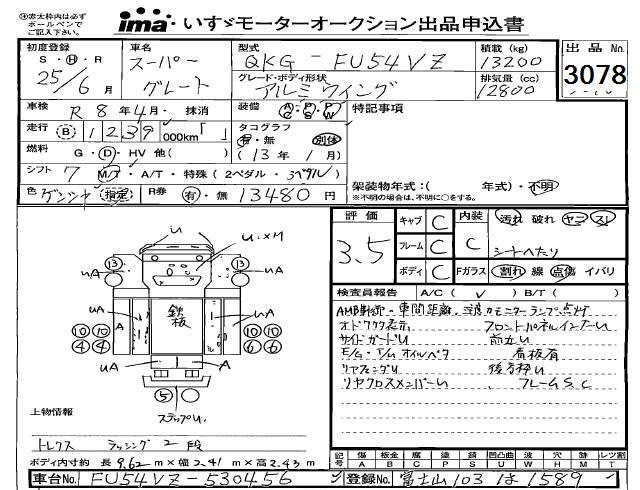 ※太枠内は必ず
ボールペンで
ご記入下さい。
ima いすゞモーターオークション出品申込書
初度登録 車名 型式 積載(kg) 出品No
S・H・R スーパー QKG-FU54VZ 13200 3078
25/6月 グレート グレード・ボディ形状 アルミウイング 排気量(cc) 12800
車検 R 8年4月・抹消 装備 A/C P/S P/W 特記事項
走行 B 1239,000km「 」 タコグラフ 有・無 別体
燃料 G・D・HV 他( ) (13年1月)
シフト 7 M/T・A/T・特殊(2ペダル/3ペダル) 架装物年式:( 年式)・不明
※不明の場合は、年式不明に○をする。
色 ゲンシャ 指定 R券 有・無 13480円
評価 3.5 キャブ C 内装 C 汚れ 破れ ヤニ スレ
フレーム C シートへたり
ボディ C Fガラス 割れ 線 点傷 イバリ
検査員報告 A/C( ✓ ) B/T( )
オドクタク表示 フロントパネルインナーU
サイドガードU 前立U
E/G・T/M オイルベタ 看板有
リヤフェンダU 後方枠U
リヤクロスメンバーU 、フレームS,C
U
U.XM
13 13
uA uA
uA
A
鉄板
uA
10 10 10 10
4 4 6 6
A
5
ステップU.
上物情報
トレクス ラッシング2段
ボディ内寸約 長9.62m×幅2.41m×高2.43m
記号 傷 板金 腐 塗 錆 凹凸曲 穴 跡 ハガレ レツ割
A B C P S U X M H T
車台No. FU54VZ-530456 登録No. 富士山103 は1589